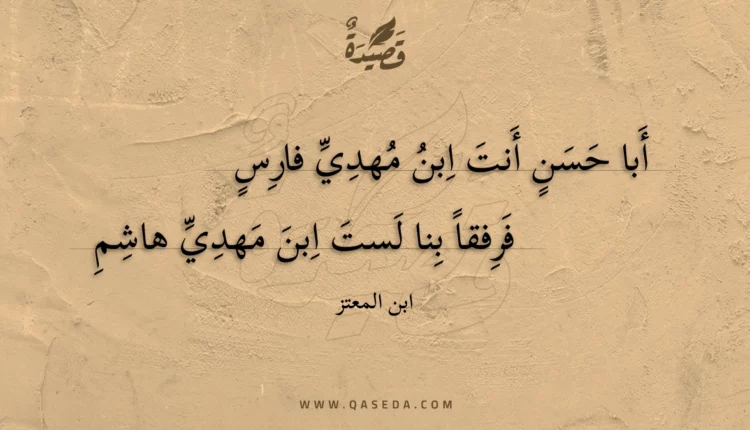 قَصِيدَةٌ
أَبا حَسَنٍ أَنتَ اِبنُ مُهدِيِّ فارِسٍ
فَرِفقاً بِنا لَستَ اِبنَ مَهدِيِّ هاشِمِ
ابن المعتز
WWW.QASEDA.COM